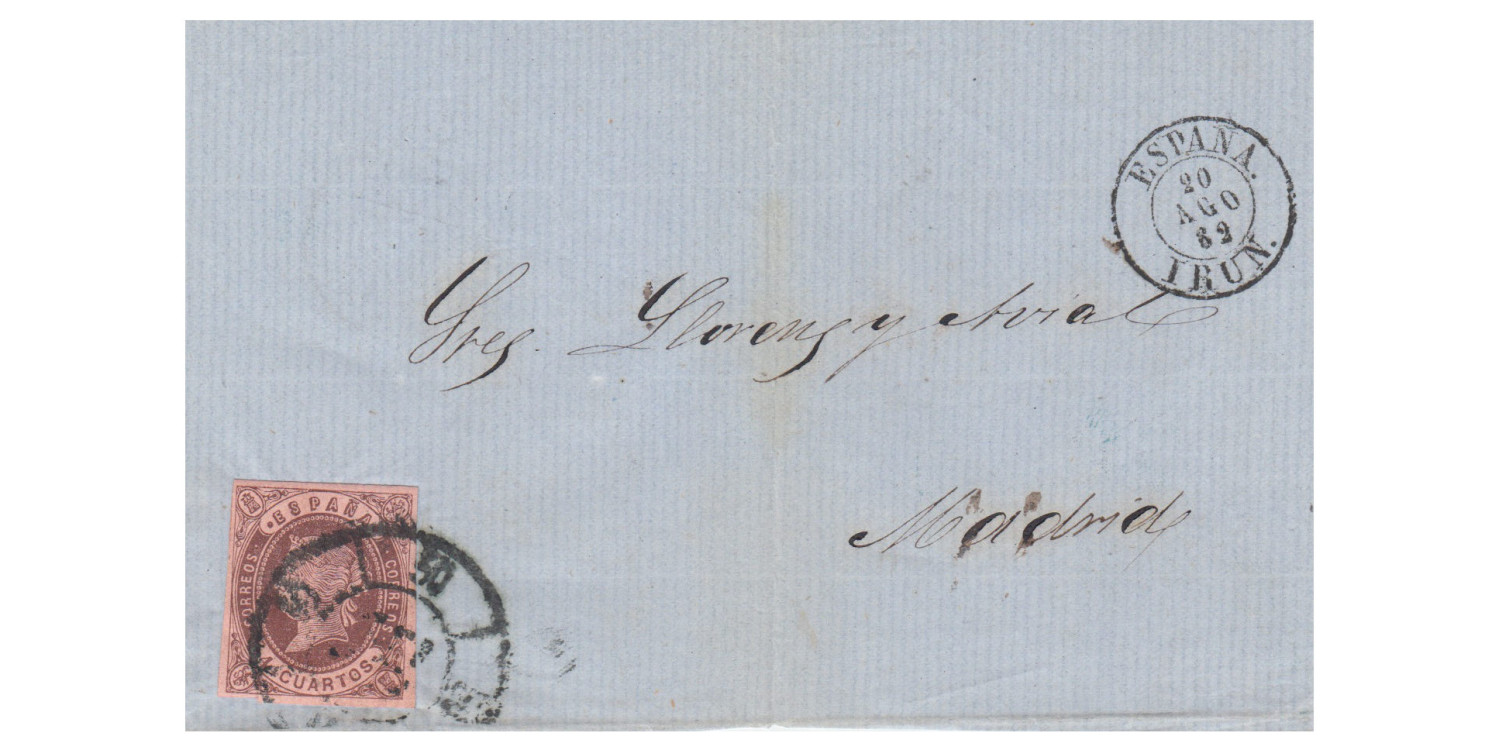 ESPAÑA.
20
AGO
62
IRUN.
Sres. Llorens y Avial
Madrid
·ESPAÑA·
CORREOS·
·CORREOS·
4 CUARTOS